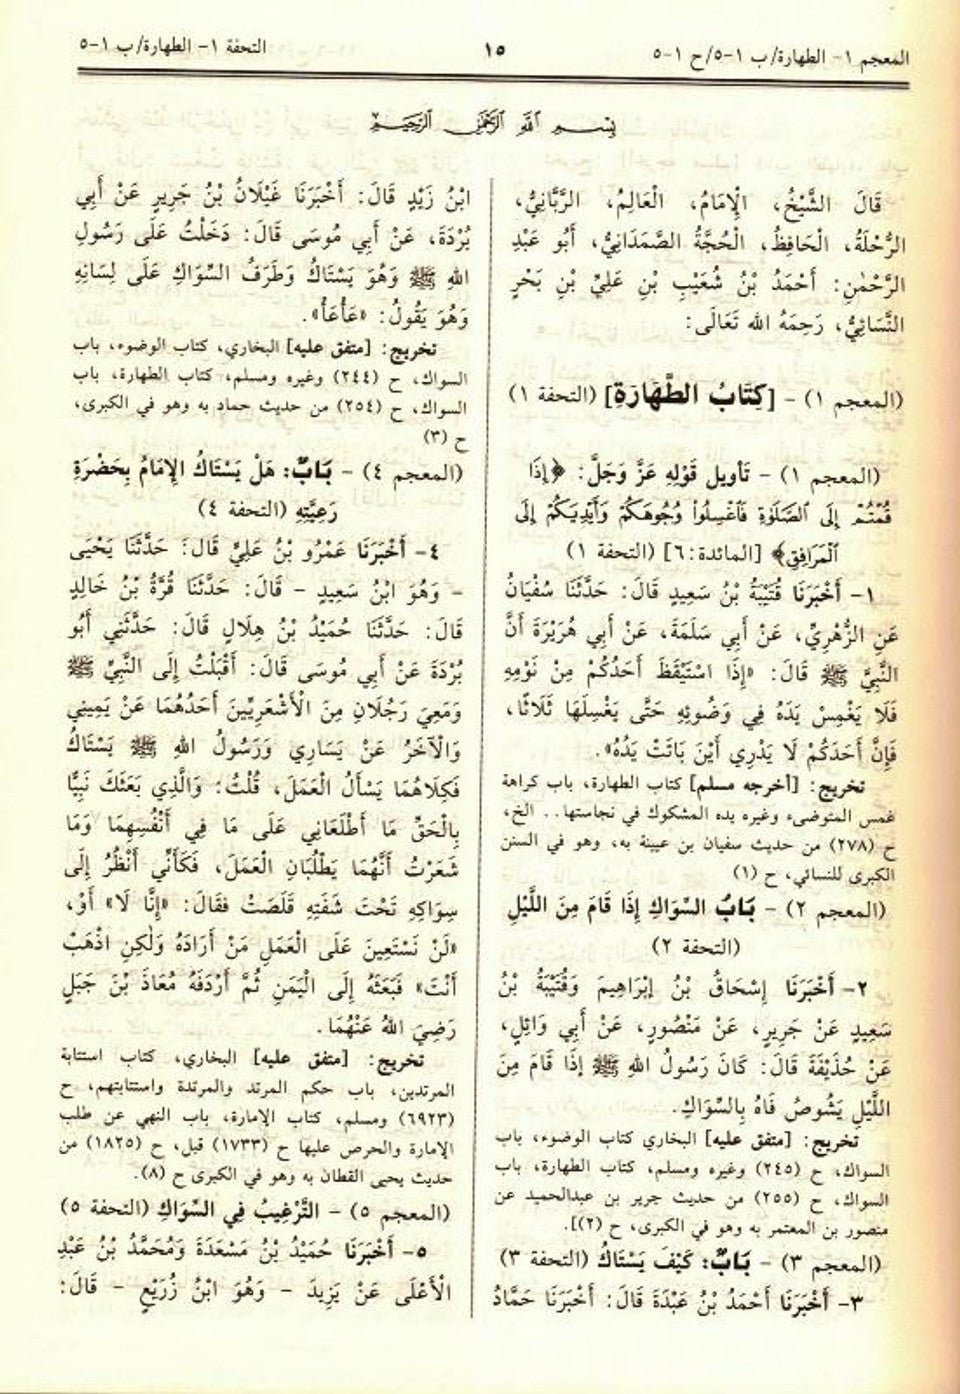 المعجم ١- الطهارة/ ب ١-٥/ ح ١-٥
١٥
التحفة ١- الطهارة/ ب ١-٥
بِسْمِ اللهِ الرَّحْمٰنِ الرَّحِيمِ
قَالَ الشَّيْخُ، الْإِمَامُ، الْعَالِمُ، الرَّبَّانِيُّ،
الرُّحْلَةُ، الْحَافِظُ، الْحُجَّةُ الصَّمَدَانِيُّ، أَبُو عَبْدِ
الرَّحْمٰنِ: أَحْمَدُ بْنُ شُعَيْبِ بْنِ عَلِيِّ بْنِ بَحْرٍ
النَّسَائِيُّ، رَحِمَهُ الله تَعَالَى:
(المعجم ١) - [كِتَابُ الطَّهَارَةِ] (التحفة ١)
(المعجم ١) - تَأْوِيل قَوْلِهِ عَزَّ وَجَلَّ: ﴿إِذَا
قُمْتُمْ إِلَى الصَّلَوٰةِ فَاغْسِلُوا وُجُوهَكُمْ وَأَيْدِيَكُمْ إِلَى
الْمَرَافِقِ﴾ [المائدة:٦] (التحفة ١)
١- أَخْبَرَنَا قُتَيْبَةُ بْنُ سَعِيدٍ قَالَ: حَدَّثَنَا سُفْيَانُ
عَنِ الزُّهْرِيِّ، عَنْ أَبِي سَلَمَةَ، عَنْ أَبِي هُرَيْرَةَ أَنَّ
النَّبِيَّ ﷺ قَالَ: «إِذَا اسْتَيْقَظَ أَحَدُكُمْ مِنْ نَوْمِهِ
فَلَا يَغْمِسْ يَدَهُ فِي وَضُوئِهِ حَتَّى يَغْسِلَهَا ثَلَاثًا،
فَإِنَّ أَحَدَكُمْ لَا يَدْرِي أَيْنَ بَاتَتْ يَدُهُ».
تخريج: [أخرجه مسلم] كتاب الطهارة، باب كراهة
غمس المتوضىء وغيره يده المشكوك في نجاستها.. الخ،
ح (٢٧٨) من حديث سفيان بن عيينة به، وهو في السنن
الكبرى للنسائي، ح (١)
(المعجم ٢) - بَابُ السِّوَاكِ إِذَا قَامَ مِنَ اللَّيْلِ
(التحفة ٢)
٢- أَخْبَرَنَا إِسْحَاقُ بْنُ إِبْرَاهِيمَ وَقُتَيْبَةُ بْنُ
سَعِيدٍ عَنْ جَرِيرٍ، عَنْ مَنْصُورٍ، عَنْ أَبِي وَائِلٍ،
عَنْ حُذَيْفَةَ قَالَ: كَانَ رَسُولُ اللهِ ﷺ إِذَا قَامَ مِنَ
اللَّيْلِ يَشُوصُ فَاهُ بِالسِّوَاكِ.
تخريج: [متفق عليه] البخاري كتاب الوضوء، باب
السواك، ح (٢٤٥) وغيره ومسلم، كتاب الطهارة، باب
السواك، ح (٢٥٥) من حديث جرير بن عبدالحميد عن
منصور بن المعتمر به وهو في الكبرى، ح (٢)].
(المعجم ٣) - بَابٌ: كَيْفَ يَسْتَاكُ (التحفة ٣)
٣- أَخْبَرَنَا أَحْمَدُ بْنُ عَبْدَةَ قَالَ: أَخْبَرَنَا حَمَّادُ
ابْنُ زَيْدٍ قَالَ: أَخْبَرَنَا غَيْلَانُ بْنُ جَرِيرٍ عَنْ أَبِي
بُرْدَةَ، عَنْ أَبِي مُوسَى قَالَ: دَخَلْتُ عَلَى رَسُولِ
اللهِ ﷺ وَهُوَ يَسْتَاكُ وَطَرَفُ السِّوَاكِ عَلَى لِسَانِهِ
وَهُوَ يَقُولُ: «عَأْعَأْ».
تخريج: [متفق عليه] البخاري، كتاب الوضوء، باب
السواك، ح (٢٤٤) وغيره ومسلم، كتاب الطهارة، باب
السواك، ح (٢٥٤) من حديث حماد به وهو في الكبرى،
ح (٣)
(المعجم ٤) - بَابٌ: هَلْ يَسْتَاكُ الْإِمَامُ بِحَضْرَةِ
رَعِيَّتِهِ (التحفة ٤)
٤- أَخْبَرَنَا عَمْرُو بْنُ عَلِيٍّ قَالَ: حَدَّثَنَا يَحْيَى
- وَهُوَ ابْنُ سَعِيدٍ - قَالَ: حَدَّثَنَا قُرَّةُ بْنُ خَالِدٍ
قَالَ: حَدَّثَنَا حُمَيْدُ بْنُ هِلَالٍ قَالَ: حَدَّثَنِي أَبُو
بُرْدَةَ عَنْ أَبِي مُوسَى قَالَ: أَقْبَلْتُ إِلَى النَّبِيِّ ﷺ
وَمَعِيَ رَجُلَانِ مِنَ الْأَشْعَرِيِّينَ أَحَدُهُمَا عَنْ يَمِينِي
وَالْآخَرُ عَنْ يَسَارِي وَرَسُولُ اللهِ ﷺ يَسْتَاكُ
فَكِلَاهُمَا يَسْأَلُ الْعَمَلَ، قُلْتُ: وَالَّذِي بَعَثَكَ نَبِيًّا
بِالْحَقِّ مَا أَطْلَعَانِي عَلَى مَا فِي أَنْفُسِهِمَا وَمَا
شَعَرْتُ أَنَّهُمَا يَطْلُبَانِ الْعَمَلَ، فَكَأَنِّي أَنْظُرُ إِلَى
سِوَاكِهِ تَحْتَ شَفَتِهِ قَلَصَتْ فَقَالَ: «إِنَّا لَا» أَوْ،
«لَنْ نَسْتَعِينَ عَلَى الْعَمَلِ مَنْ أَرَادَهُ وَلٰكِنِ اذْهَبْ
أَنْتَ» فَبَعَثَهُ إِلَى الْيَمَنِ ثُمَّ أَرْدَفَهُ مُعَاذَ بْنَ جَبَلٍ
رَضِيَ اللهُ عَنْهُمَا.
تخريج: [متفق عليه] البخاري، كتاب استتابة
المرتدين، باب حكم المرتد والمرتدة واستتابتهم، ح
(٦٩٢٣) ومسلم، كتاب الإمارة، باب النهي عن طلب
الإمارة والحرص عليها ح (١٧٣٣) قبل، ح (١٨٢٥) من
حديث يحيى القطان به وهو في الكبرى ح (٨).
(المعجم ٥) - التَّرْغِيبُ فِي السِّوَاكِ (التحفة ٥)
٥- أَخْبَرَنَا حُمَيْدُ بْنُ مَسْعَدَةَ وَمُحَمَّدُ بْنُ عَبْدِ
الْأَعْلَى عَنْ يَزِيدَ - وَهُوَ ابْنُ زُرَيْعٍ - قَالَ: